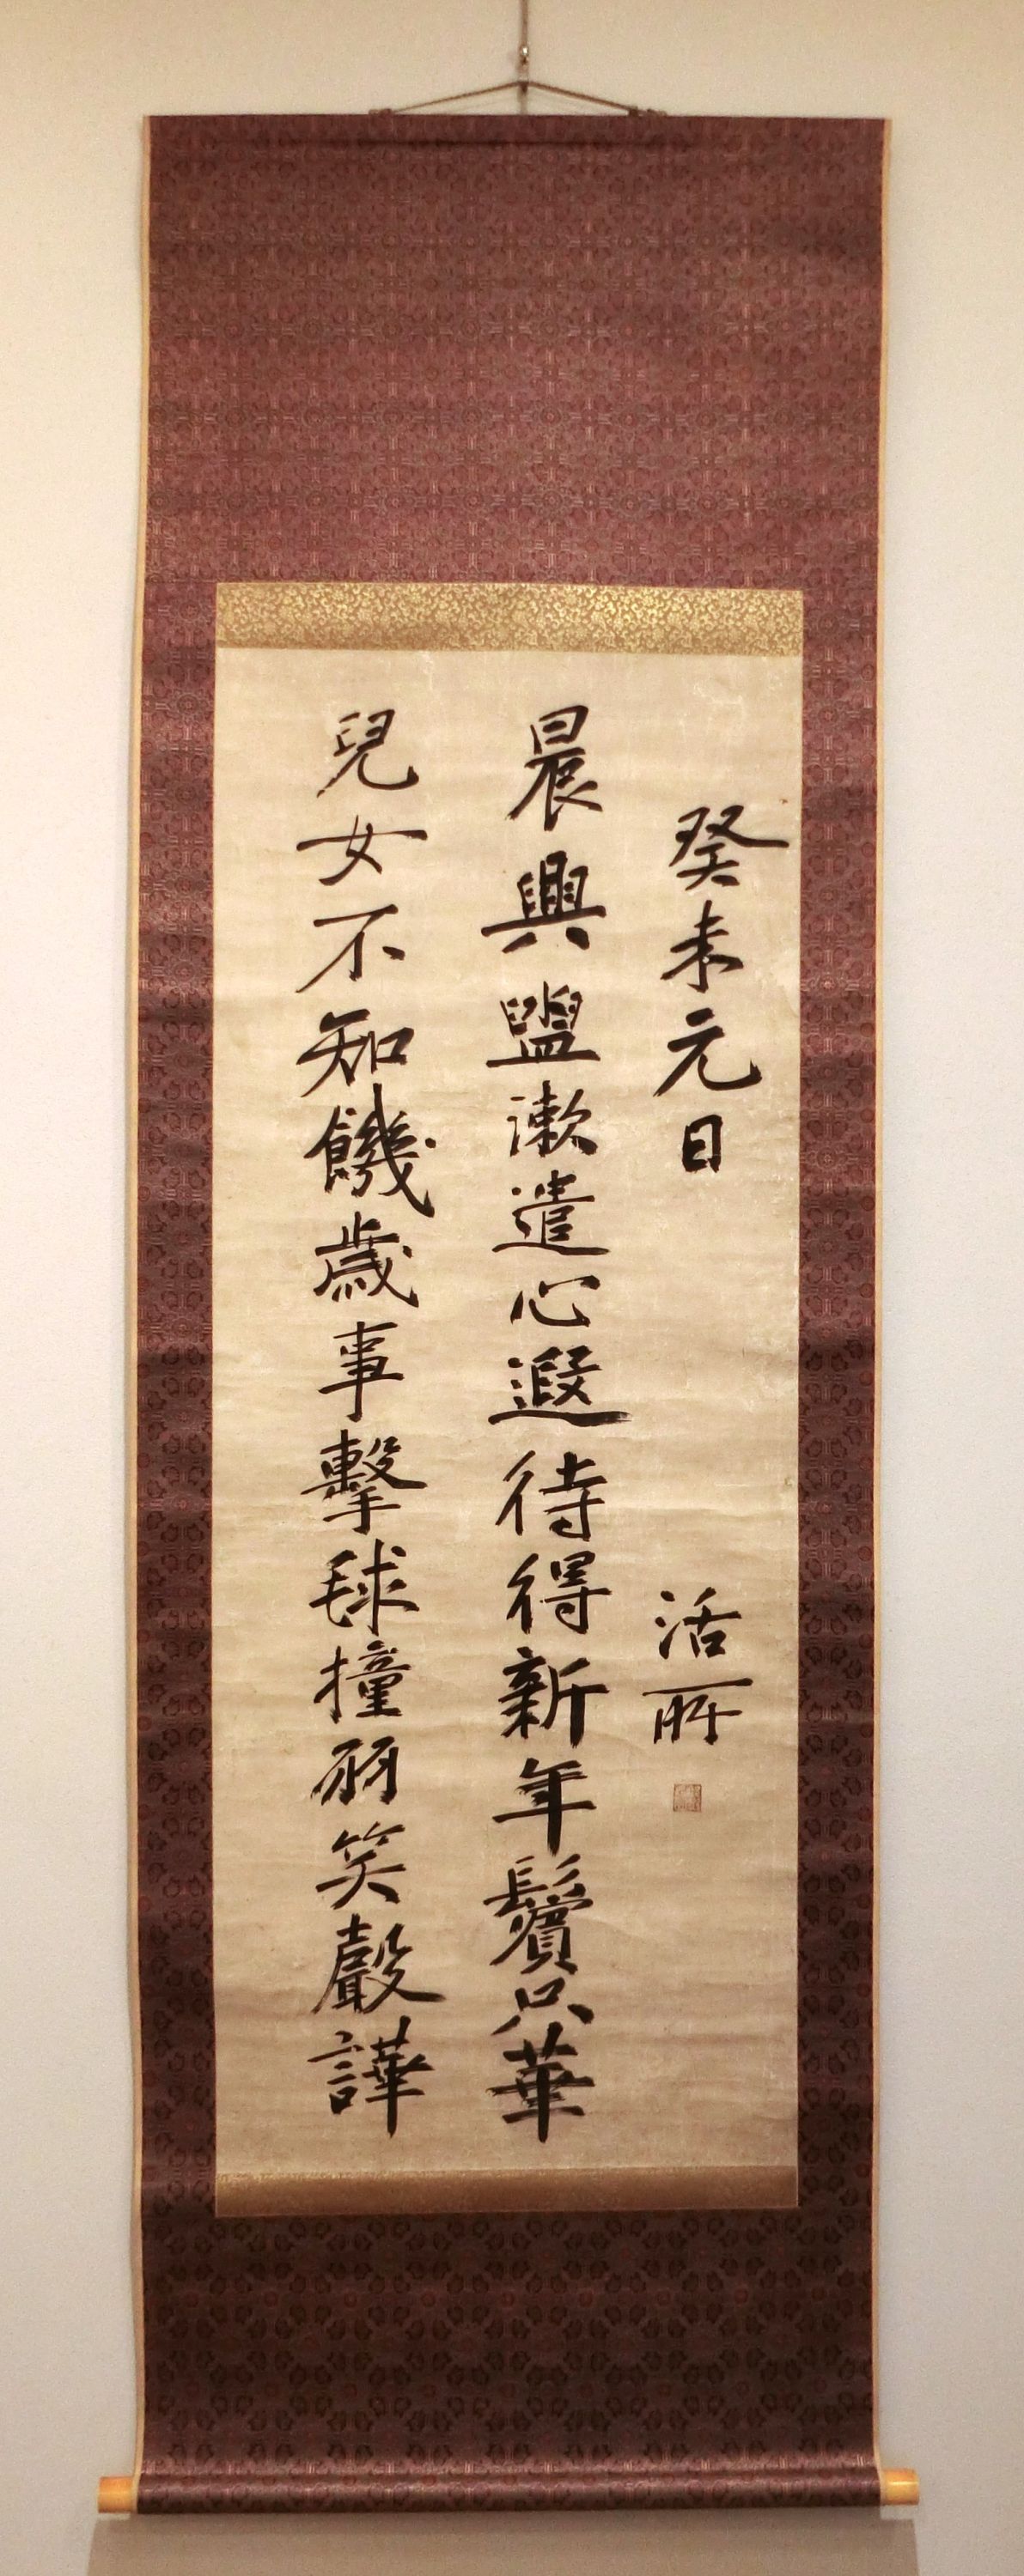 癸未元日 活所
晨興盥漱遣心遐待得新年鬢只華
兒女不知饑歲事擊毬撞羽笑聲譁